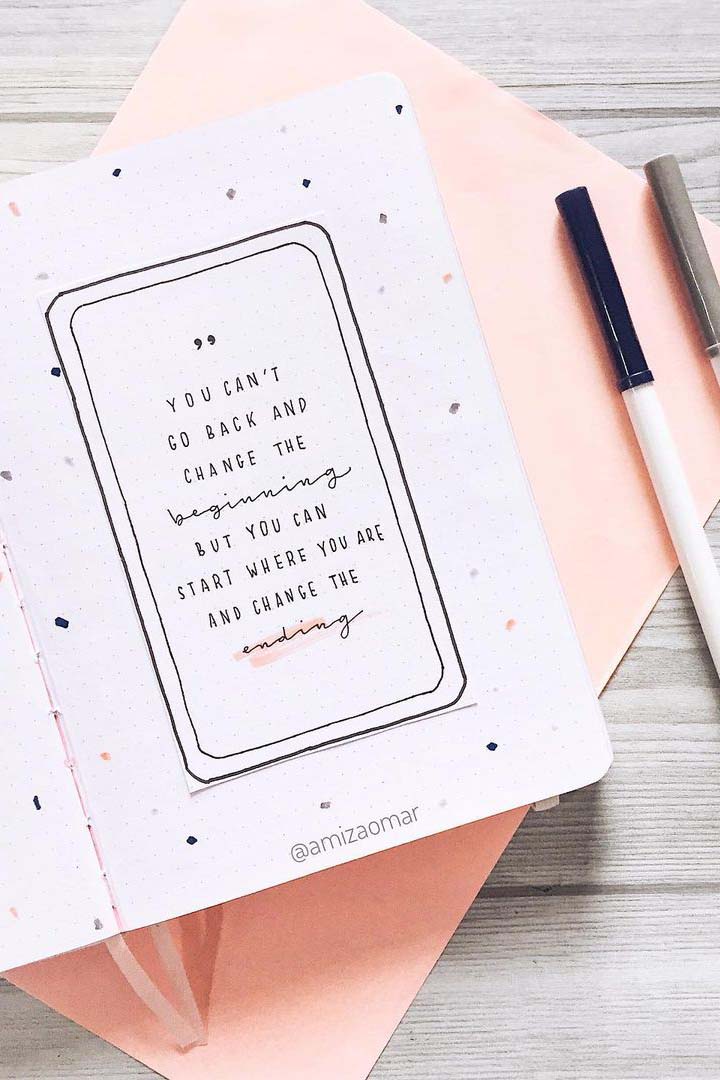 ”
YOU CAN'T
GO BACK AND
CHANGE THE
beginning
BUT YOU CAN
START WHERE YOU ARE
AND CHANGE THE
ending
@amizaomar